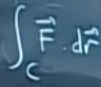 ∫_C F⃗ . dr⃗